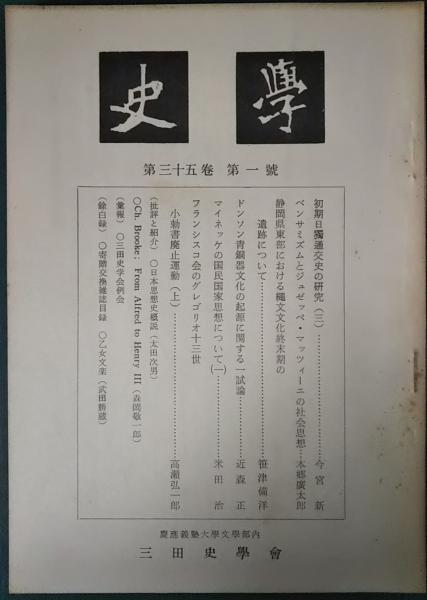 史學
第三十五卷 第一號
初期日獨通交史の研究(三)…………今宮 新
ベンサミズムとジュゼッペ・マッツィーニの社会思想…本郷廣太郎
静岡県東部における縄文文化終末期の
遺跡について…………笹津備洋
ドンソン青銅器文化の起源に関する一試論…………近森 正
マイネッケの国民国家思想について(一)…………米田 治
フランシスコ会のグレゴリオ十三世
小勅書廃止運動(上)…………高瀬弘一郎
(批評と紹介) 〇日本思想史概説(太田次男)
〇Ch. Brooke; From Alfred to Henry III(森岡敬一郎)
(彙報) 〇三田史学会例会
(餘白録) 〇寄贈交換雑誌目録 〇乙女文楽(武田勝蔵)
慶應義塾大學文學部内
三田史學會